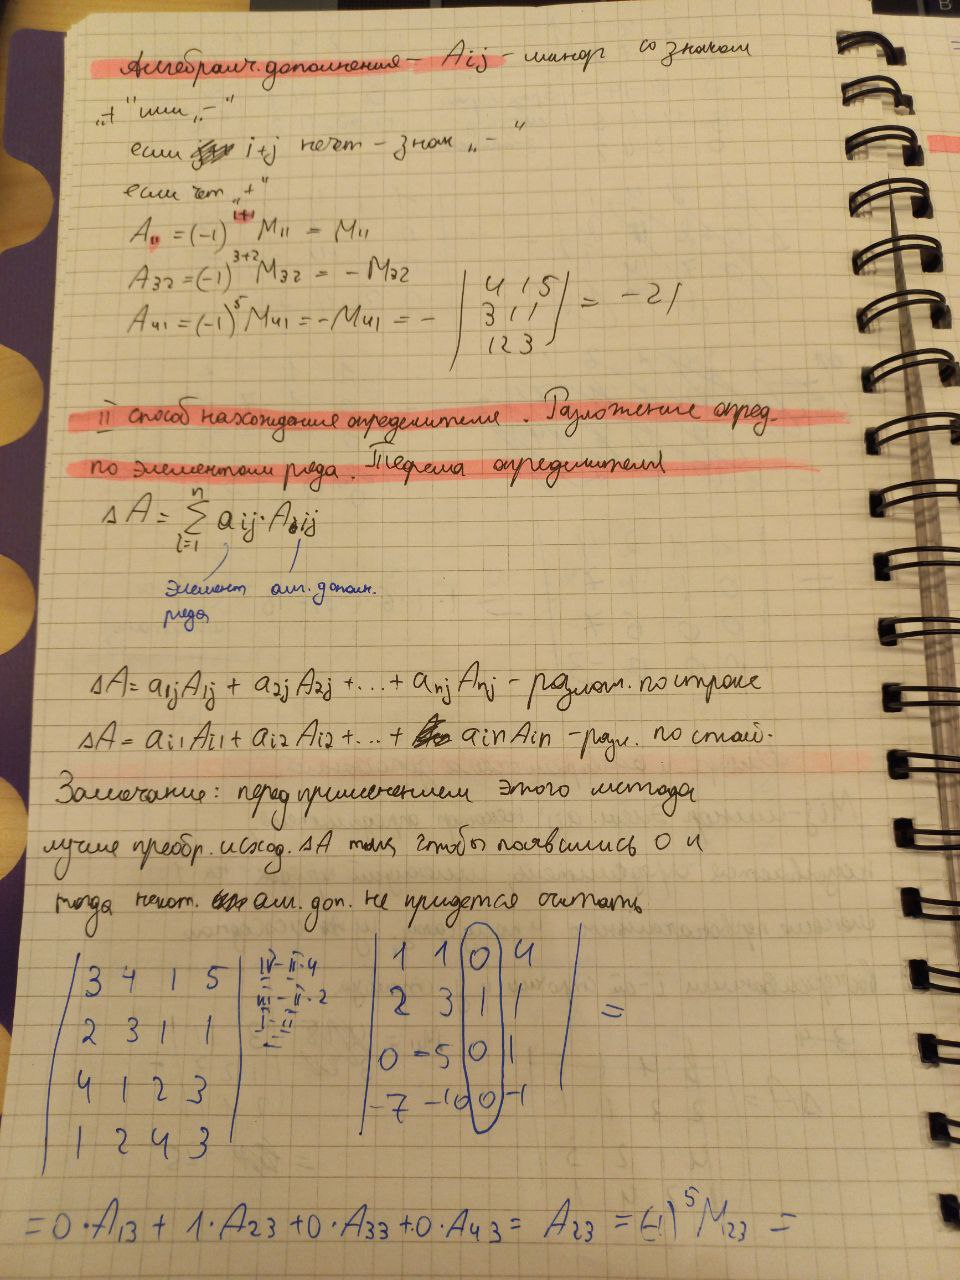 Алгебраич. дополнения – Aij – минор со знаком
„+" или „–"
если i+j нечет – знак „–"
если чет „+"
A₁₁ = (-1)¹⁺¹ M₁₁ = M₁₁
A₃₂ = (-1)³⁺² M₃₂ = - M₃₂
A₄₁ = (-1)⁵ M₄₁ = -M₄₁ = - | 4 1 5 | = -21
3 1 1
1 2 3
II способ нахождения определителя. Разложение опред.
по элементам ряда. Теорема определителя
ΔA = Σ aij · Aij
n
i=1
элемент алг. дополн.
ряда
ΔA = a1j A1j + a2j A2j + ... + anj Anj – разлож. по строке
ΔA = ai1 Ai1 + ai2 Ai2 + ... + ain Ain – разл. по столб.
Замечание: перед применением этого метода
лучше преобр. исход. ΔA так, чтобы появились 0 и
тогда некот. алг. доп. не придется считать
3 4 1 5 IV - II·4 1 1 0 4
2 3 1 1 III - II·2 2 3 1 1 =
4 1 2 3 0 -5 0 1
1 2 4 3 -7 -10 0 -1
= 0 · A₁₃ + 1 · A₂₃ + 0 · A₃₃ + 0 · A₄₃ = A₂₃ = (-1)⁵ M₂₃ =